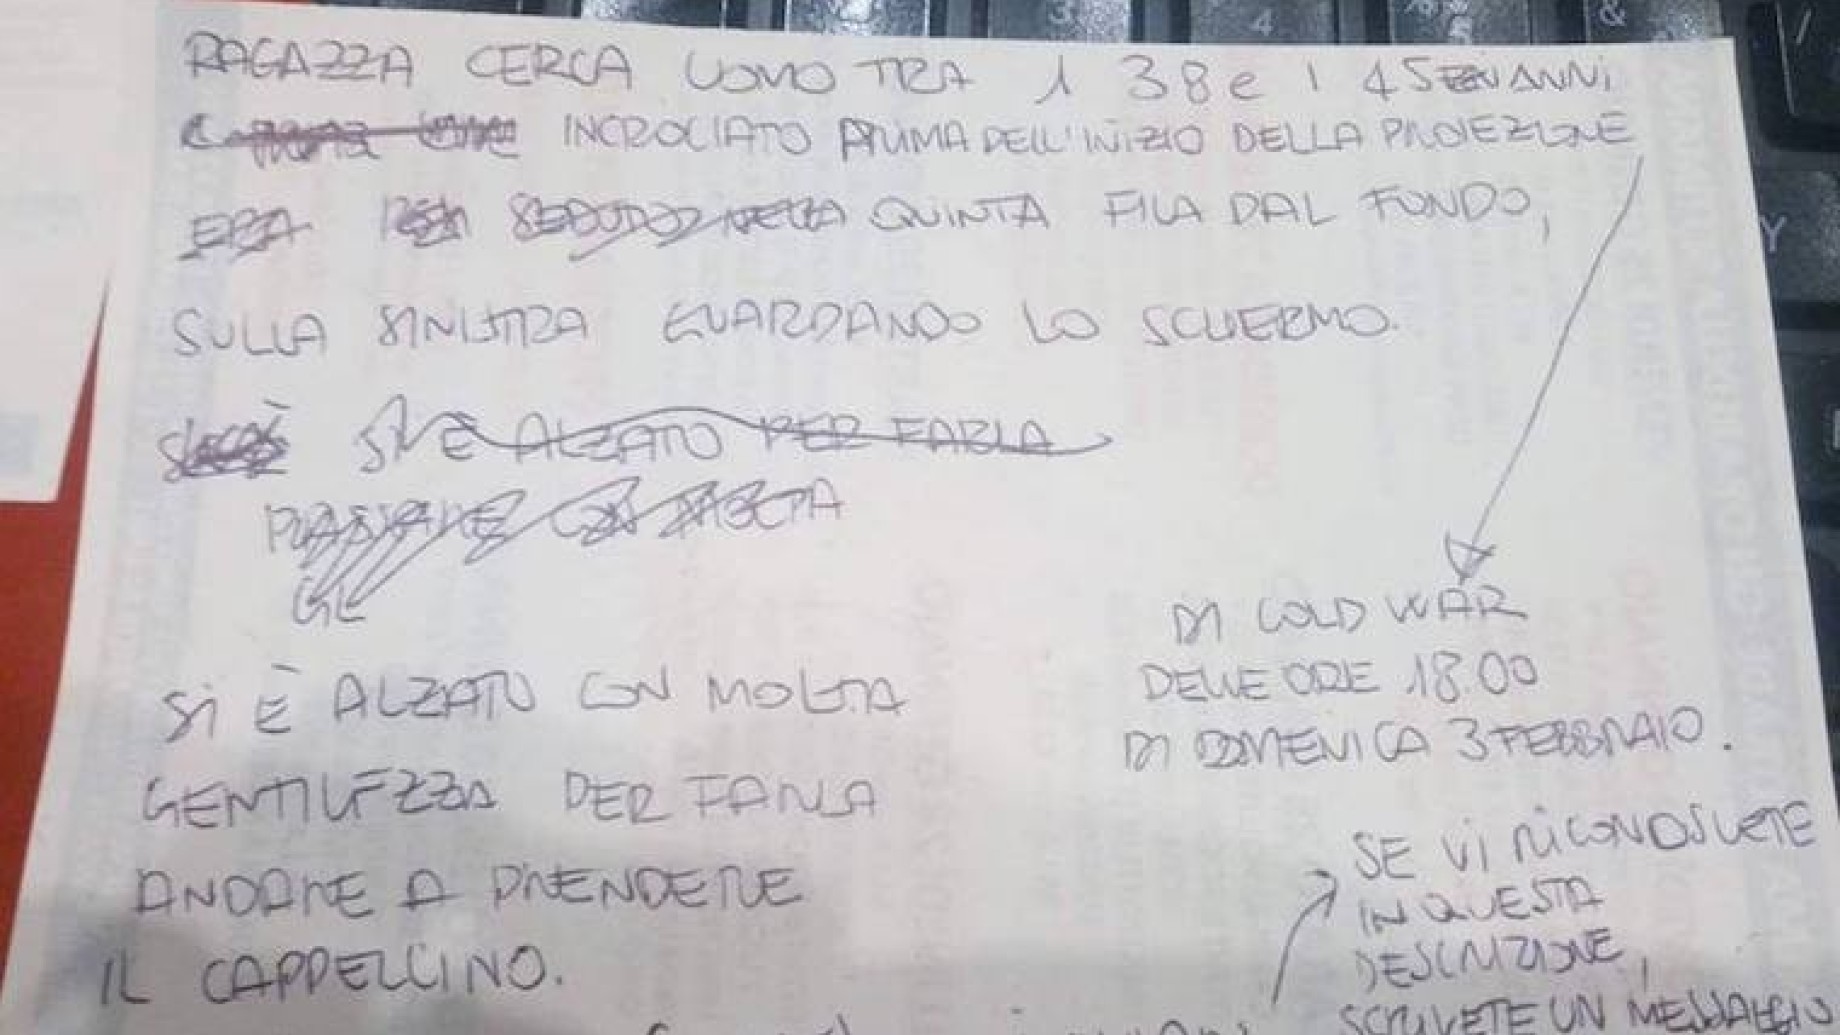 RAGAZZA CERCA UOMO TRA I 38 e I 45 ANNI
INCROCIATO PRIMA DELL'INIZIO DELLA PROIEZIONE
ERA SEDUTO NELLA QUINTA FILA DAL FONDO,
SULLA SINISTRA GUARDANDO LO SCHERMO.
SI È ALZATO PER FARLA
GL
SI È ALZATO CON MOLTA
GENTILEZZA PER FARLA
ANDARE A PRENDERE
IL CAPPELLINO.
DI COLD WAR
DELLE ORE 18.00
DI DOMENICA 3 FEBBRAIO.
SE VI RICONOSCETE
IN QUESTA
DESCRIZIONE,
SCRIVETE UN MESSAGGIO